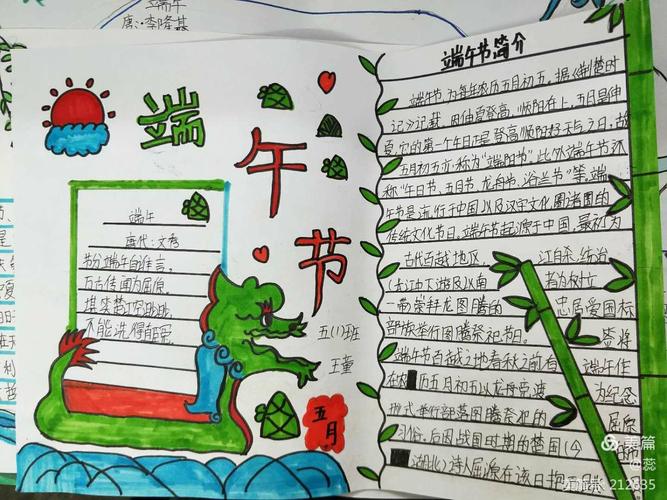 端午
唐:李隆基
端午节
端午
唐代:文秀
节分端午自谁言,
万古传闻为屈原,
堪笑楚江空渺渺,
不能洗得直臣冤。
五(1)班
王童
五月
端午节简介
端午节,为每年农历五月初五。据《荆楚时
记》记载,因仲夏登高,顺阳在上,五月是仲
夏,它的第一个午日正是登高顺阳好天气之日,故
五月初五亦称为“端阳节”。此外端午节还
称“午日节、五月节、龙舟节、浴兰节”等,端
午节是流行于中国以及汉字文化圈诸国的
传统文化节日。端午节起源于中国,最初为
古代百越地区 江自杀,统治
(长江中下游及以南 者为树立
一带)崇拜龙图腾的 忠君爱国标
部族举行图腾祭祀节日。 签将
端午节百越之地春秋之前有 端午作
在农历五月初五以龙舟竞渡 为纪念
形式举行部落图腾祭祀的 屈原
习俗。后因战国时期的楚国(今
湖北)诗人屈原在该日抱石
美篇
212635